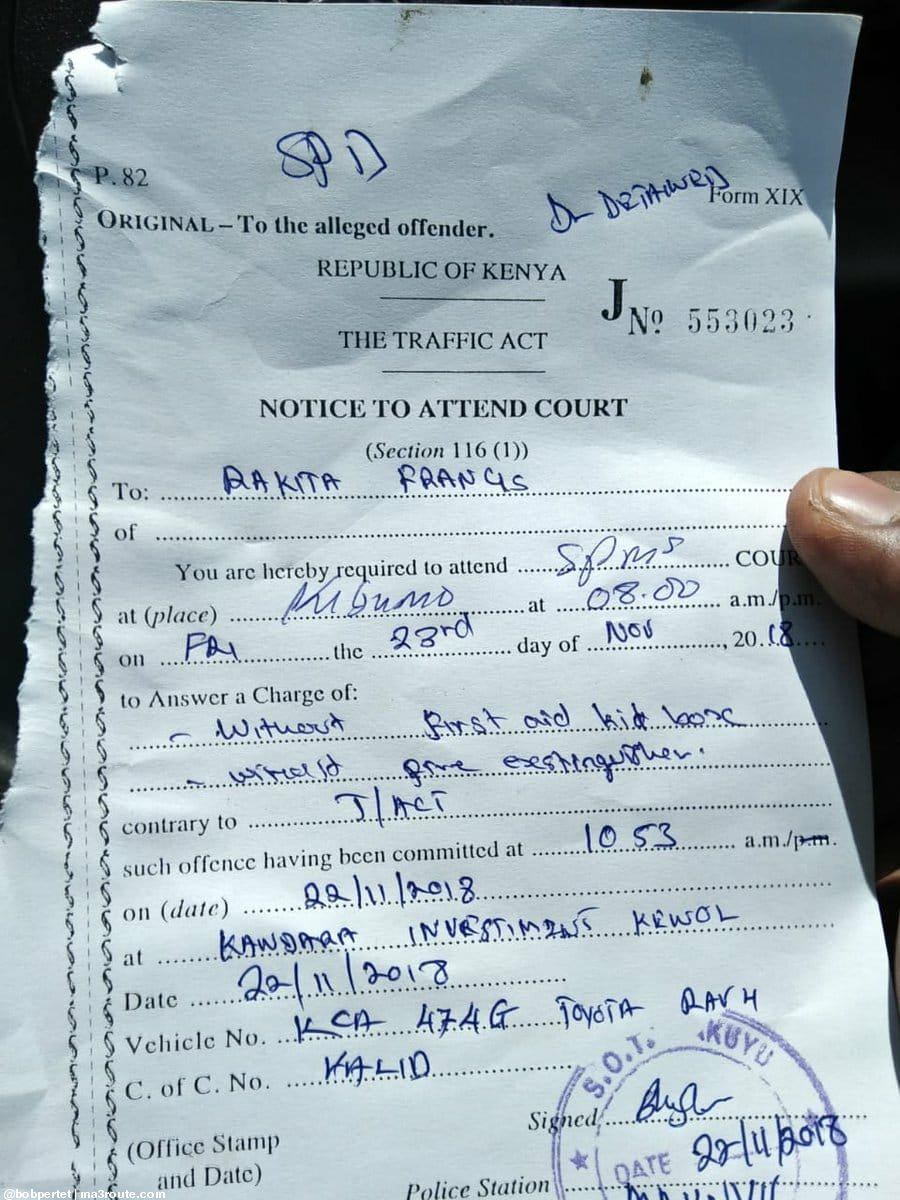 SPD
P. 82
DL DETAINED
Form XIX
ORIGINAL – To the alleged offender.
REPUBLIC OF KENYA
J No 553023
THE TRAFFIC ACT
NOTICE TO ATTEND COURT
(Section 116 (1))
To: RAKITA FRANCIS
of
You are hereby required to attend SPMS COUR
at (place) at 08.00 a.m./p.m.
on FRI the 23rd day of NOV, 2018
to Answer a Charge of:
- Without first aid kit box
- without fire
contrary to T/ACT
such offence having been committed at 10 53 a.m./p.m.
on (date) 22/11/2018
at KANDARA INVESTIMENT
Date 22/11/2018
Vehicle No. KCA 474G TOYOTA RAV 4
C. of C. No. VALID
S.O.T. KUYU
Signed
(Office Stamp
and Date)
DATE 22/11/2018
Police Station
@bobpertet | ma3route.com